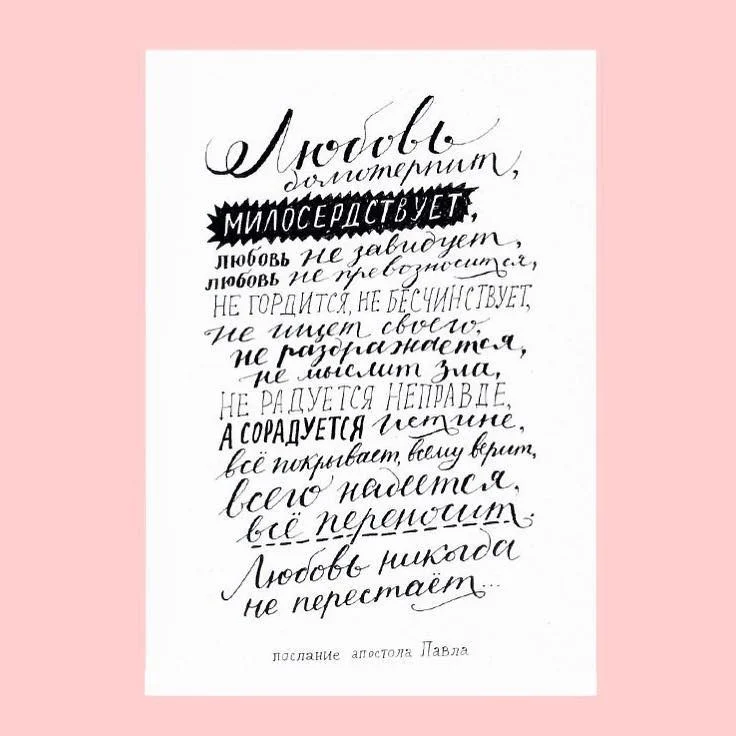 Любовь
долготерпит,
МИЛОСЕРДСТВУЕТ,
ЛЮБОВЬ не завидует,
ЛЮБОВЬ не превозносится,
НЕ ГОРДИТСЯ, НЕ БЕСЧИНСТВУЕТ,
не ищет своего,
не раздражается,
не мыслит зла,
НЕ РАДУЕТСЯ НЕПРАВДЕ,
А СОРАДУЕТСЯ истине,
всё покрывает, всему верит,
всего надеется,
всё переносит.
Любовь никогда
не перестаёт...
послание апостола Павла